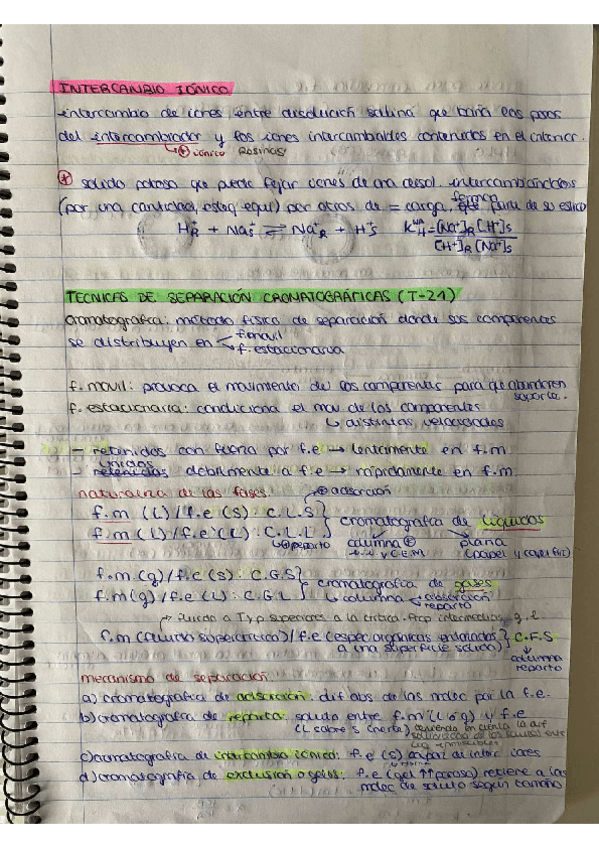 INTERCAMBIO IÓNICO
intercambio de iones entre disolución salina que baña los poros
del intercambiador y los iones intercambiables contenidos en el interior.
+ iónico Resinas
* solido poroso que puede fijar iones de una disol. intercambiándolos
(por una cantidad esteq equi) por otros de = carga, que forma parte de su estruct
H⁺R + Na⁺S ⇌ Na⁺R + H⁺S K = [Na⁺]R [H⁺]S
[H⁺]R [Na⁺]S
TECNICAS DE SEPARACIÓN CROMATOGRÁFICAS (T-21)
Cromatografía: método físico de separación donde sus componentes
se distribuyen en f.movil
f.estacionaria
f. movil: provoca el movimiento de los componentes para que abandonen
soporte.
f. estacionaria: condiciona el mov de los componentes
↳ distintas velocidades
- retenidos con fuerza por f.e → lentamente en f.m
unidos
- retenidas debilmente a f.e → rápidamente en f.m
naturaleza de las fases. adsorción
f.m (L) / f.e (S): C.L.S
f.m (L) / f.e (L): C.L.L
cromatografía de líquidos
reparto columna plana
(papel y capa fina)
f.m.(g) / f.e (S): C.G.S
f.m(g) / f.e (L): C.G.L
cromatografía de gases
↳ columna adsorción
reparto
Fluido a T y p superiores a la critica. Prop intermedias g. l
f.m (fluido supercritico) / f.e (espec orgánicas enlazadas
a una superficie solida) } C.F.S
columna
reparto
mecanismo de separación.
a) cromatografía de adsorción: dif abs de las molec por la f.e.
b) cromatografía de reparto. soluto entre f.m (L o g) y f.e
(L sobre S inerte) teniendo en cuenta la dif
solubilidad de los solutos
liq inmiscibles
c) cromatografía de intercambio iónico: f.e (S) capaz de interc iones
d) cromatografía de exclusión o geles: f.e (gel ↑↑ poroso) retiene a las
molec de soluto según tamaño